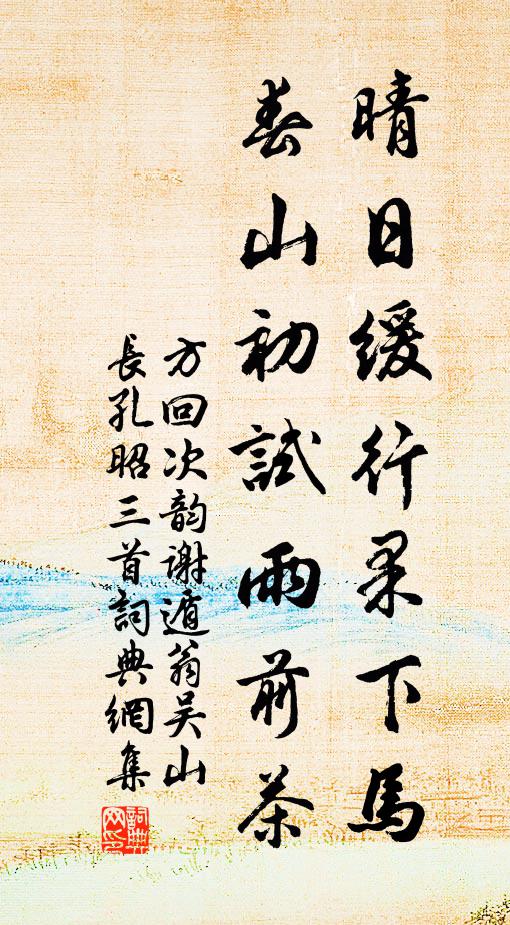 晴日緩行果下馬
春山初試雨前茶
方回次韵谢遁翁吴山
長孔昭三首詞典網集
詞典
网印